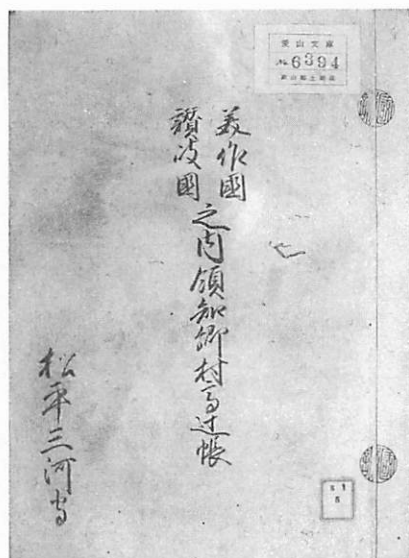 愛山文庫
№6394
美作國
讃岐國
之内領知郷村高辻帳
松平三河守